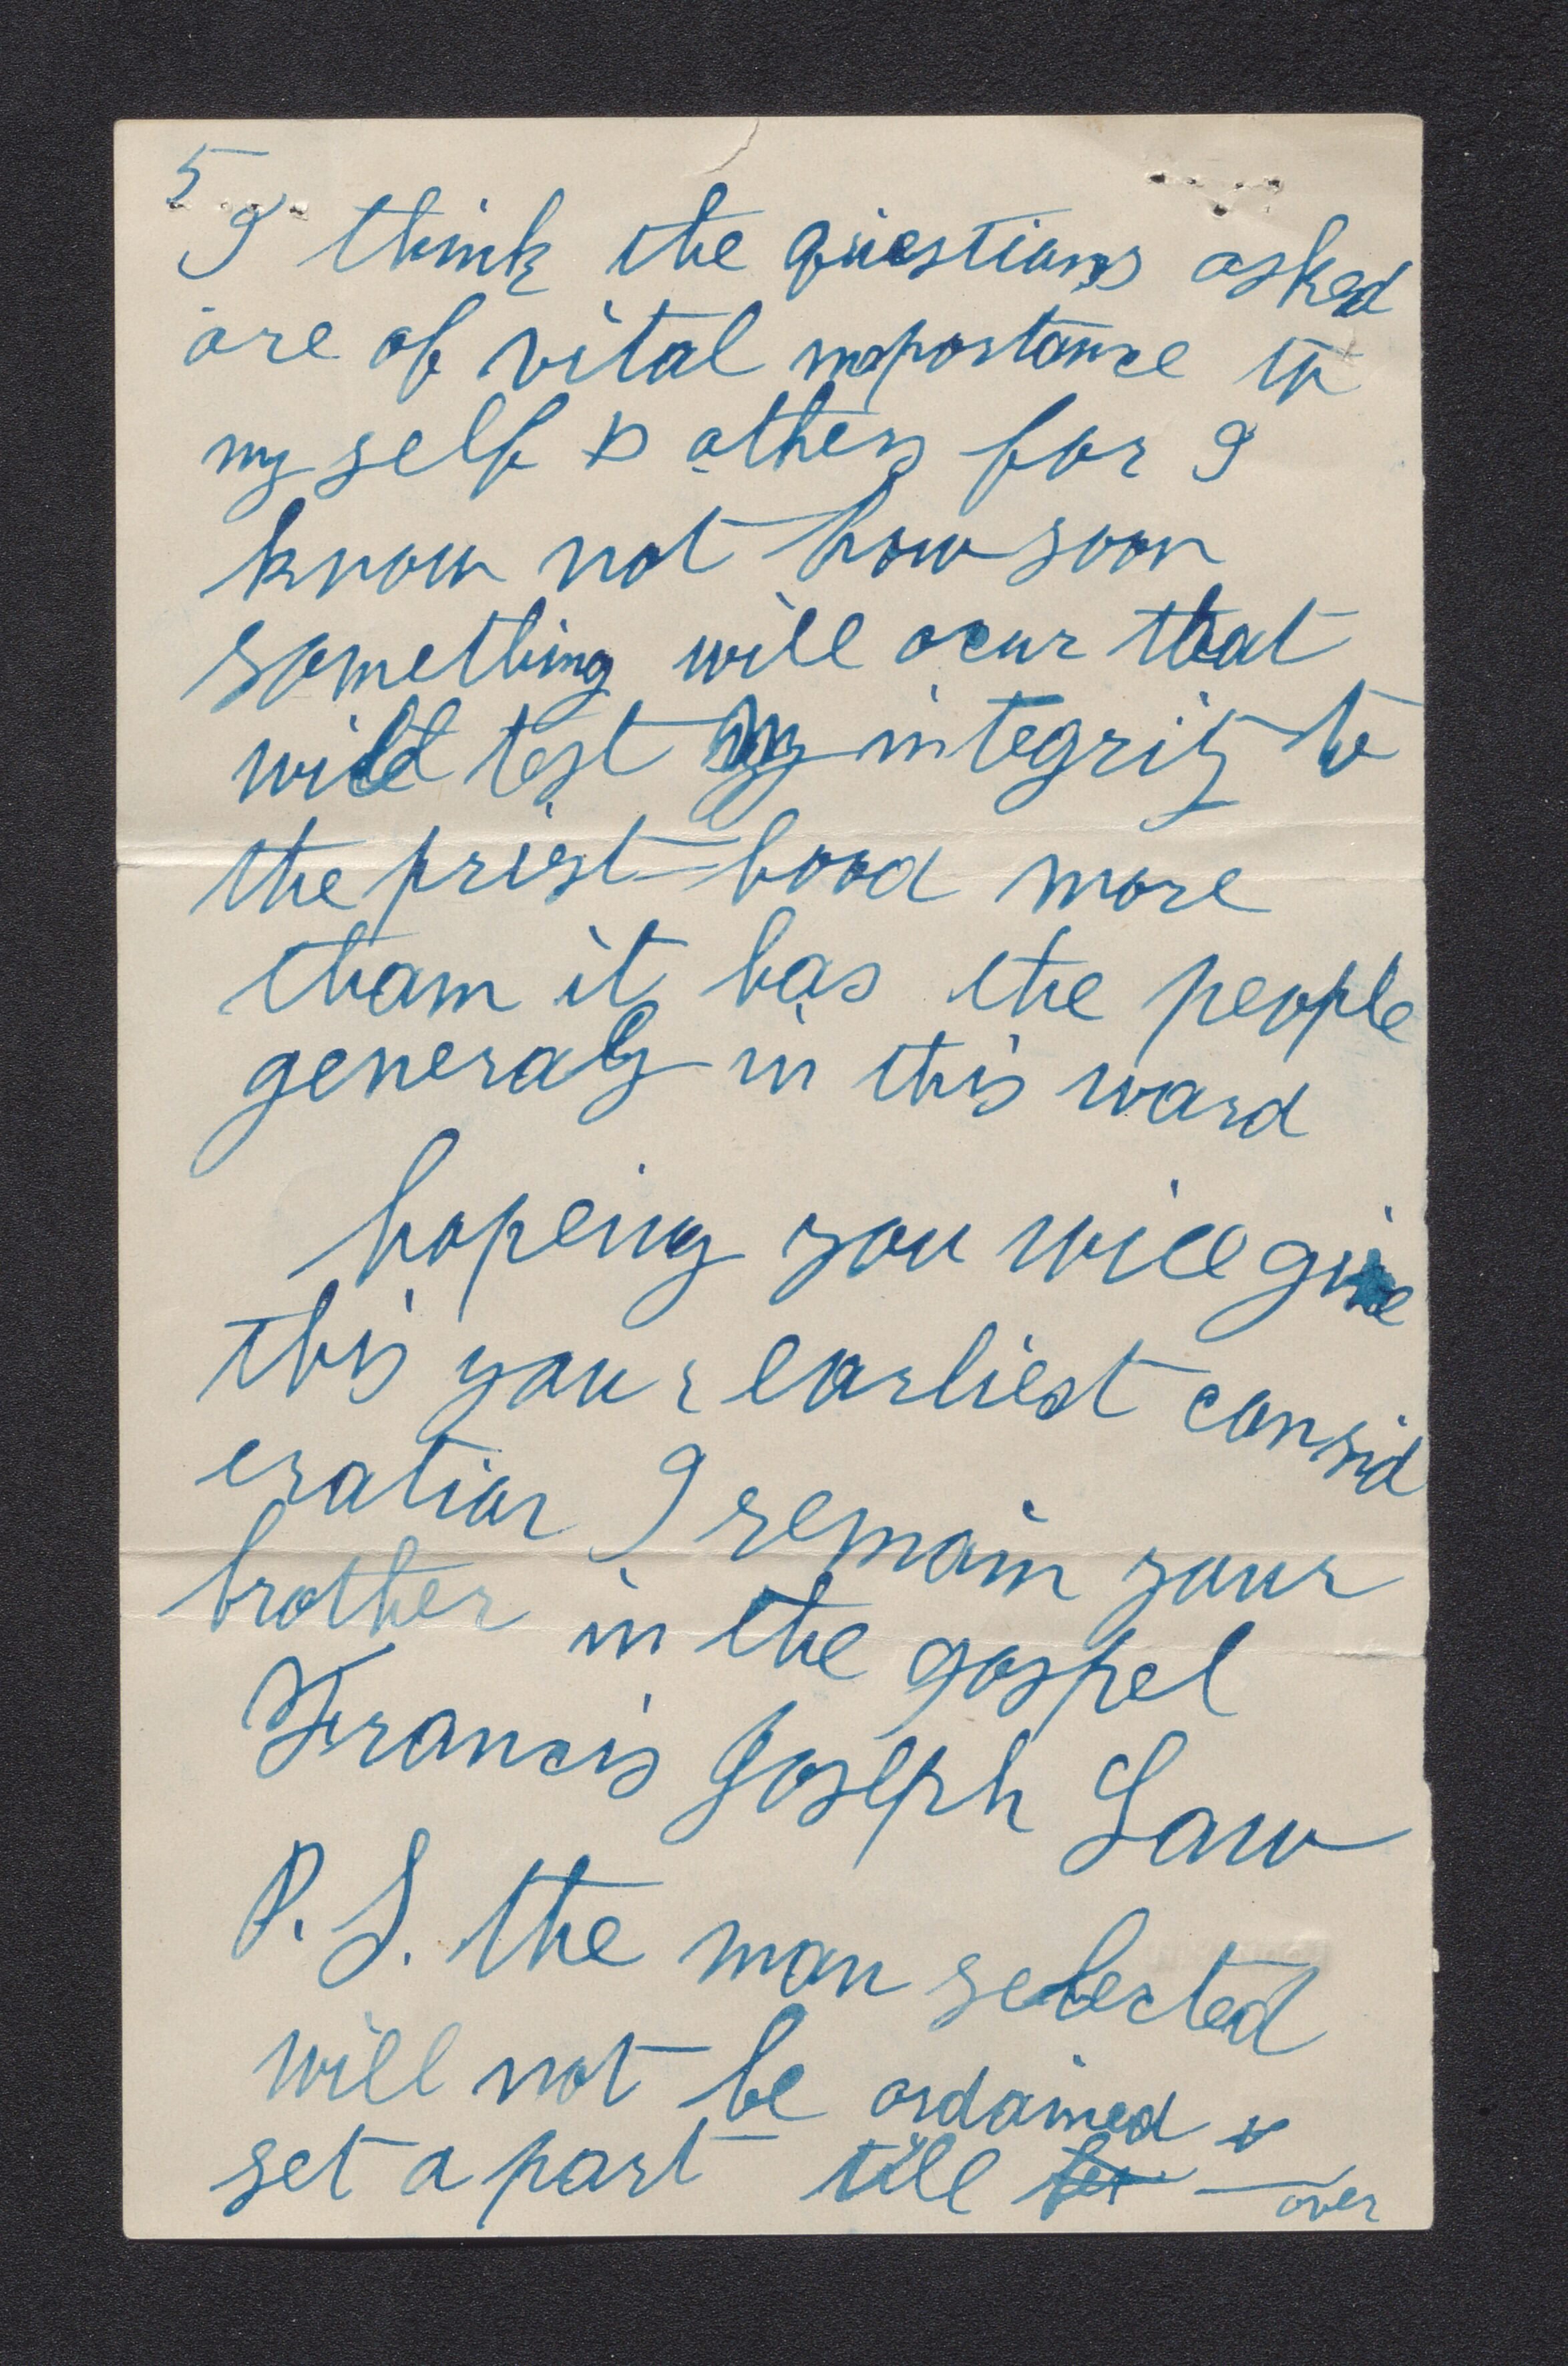 5
I think the questions asked
are of vital importance to
my self & others for I
know not how soon
something will ocur that
will test my integrity to
the priest-hood more
than it has the people
generaly in this ward
hopeing you will give
this your earliest consid
eration I remain your
brother in the gospel
Francis Joseph Law
P. S. the man selected
will not be ordained &
set a part till
over